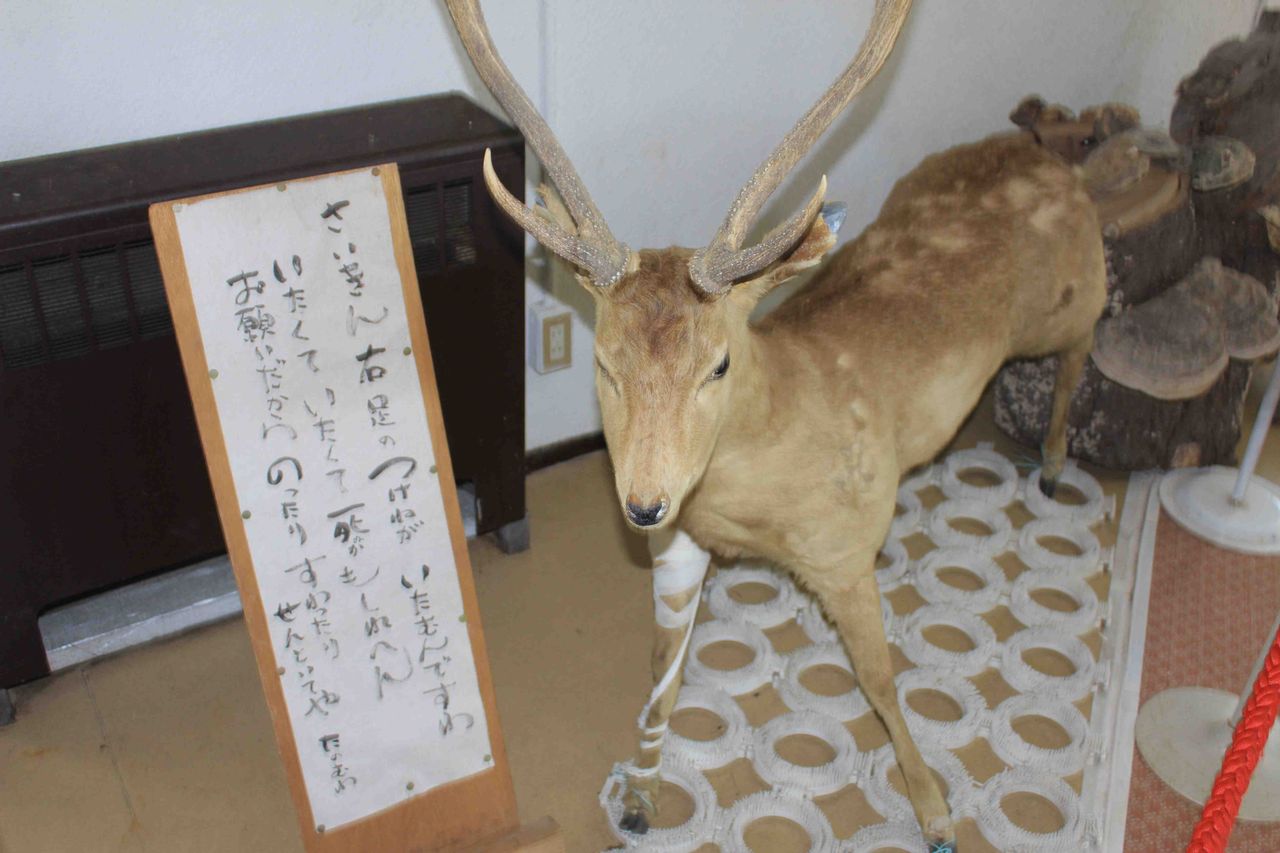 さいきん 右足の つけねが いたむんですわ
いたくて いたくて 死ぬかもしれへん
お願いだから のったり すわったり せんといてや たのむわ